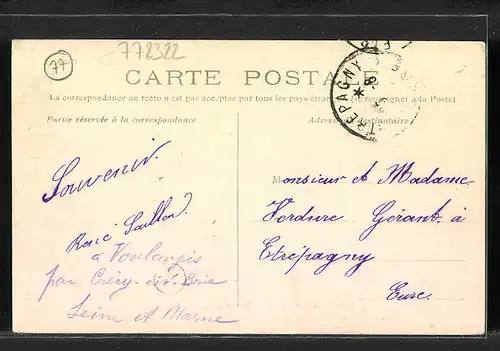 772322
77
CARTE POSTALE
La correspondance au recto n'est pas acceptée par tous les pays étrangers (Se renseigner à la Poste)
Partie réservée à la correspondance
Adresse du destinataire
TREPAGNY
Souvenir.
René
à Voulangis
par Crécy-en-Brie
Seine et Marne
Monsieur et Madame
Verdure Gérant à
Etrépagny
Eure.